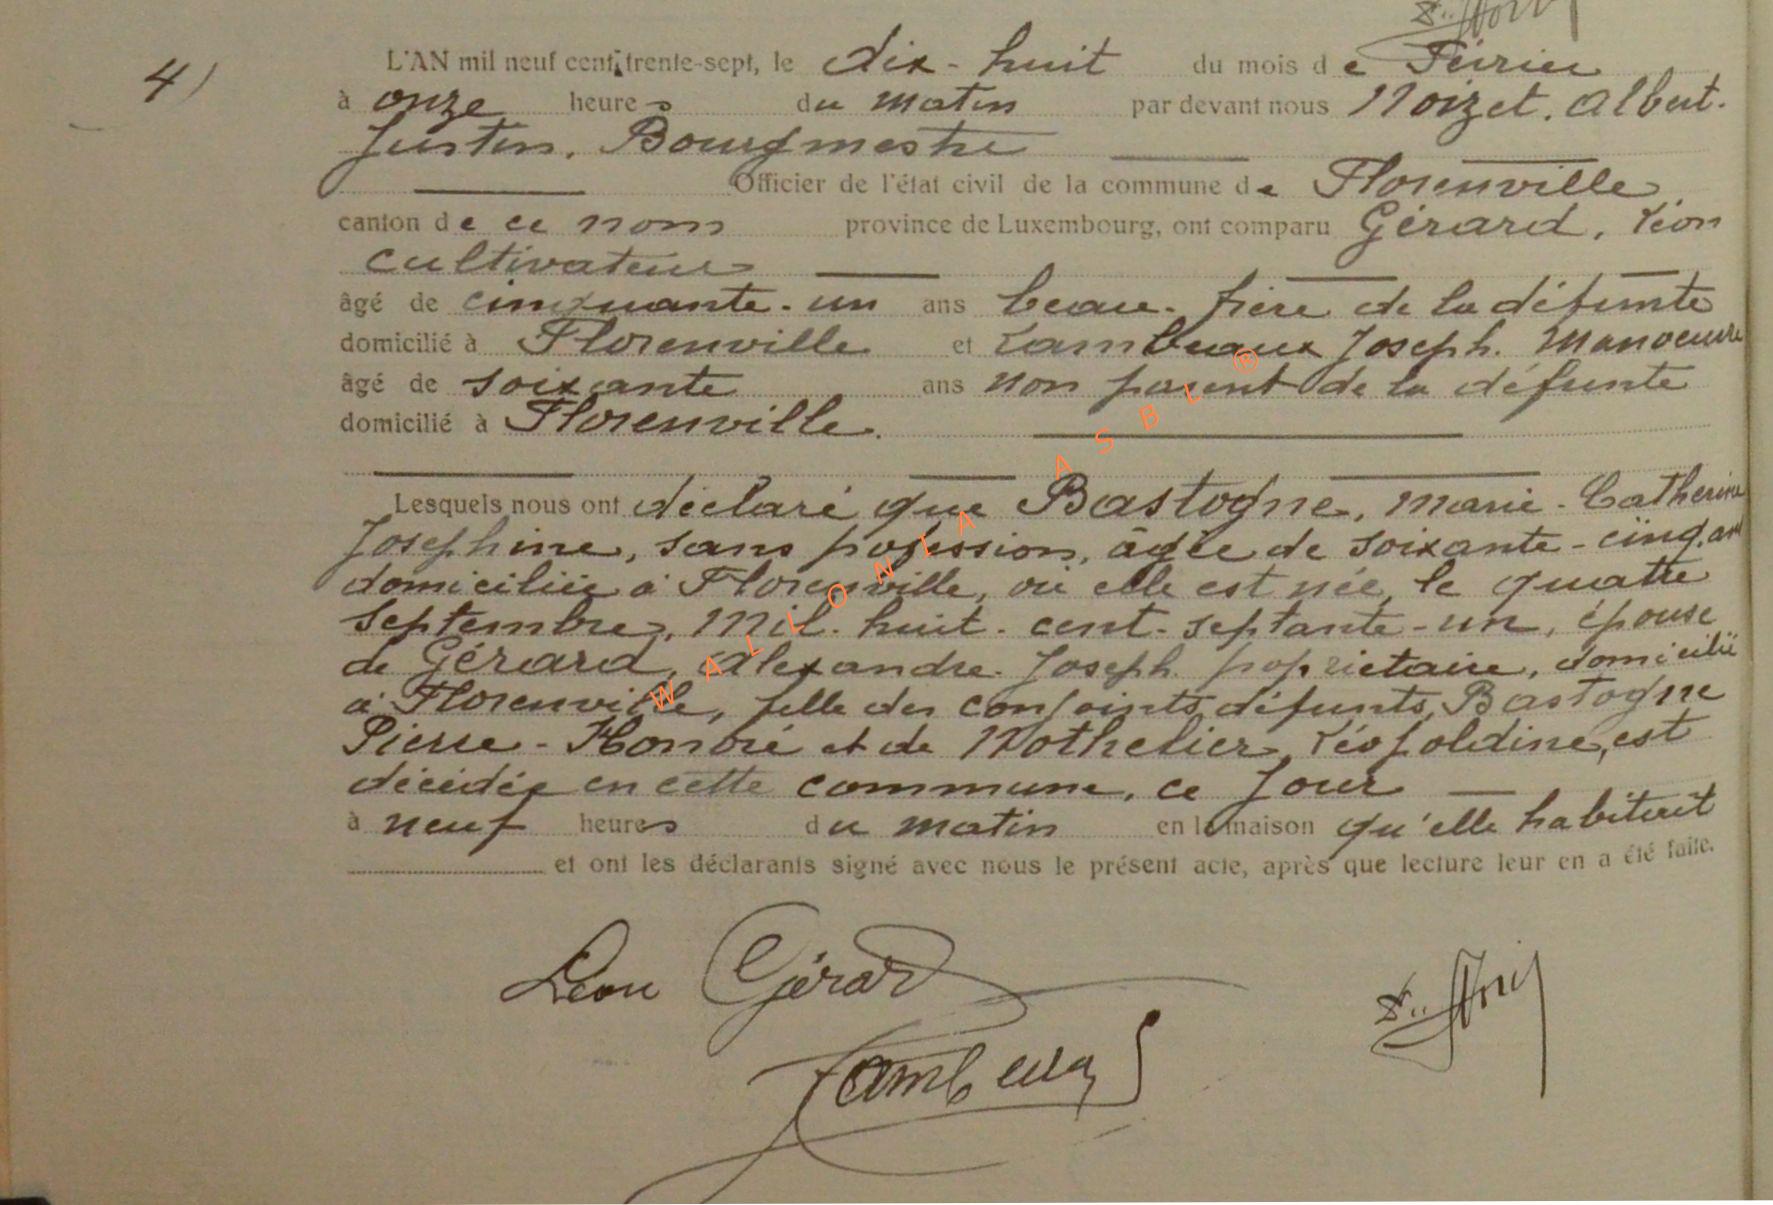 4)
L'AN mil neuf cent trente-sept, le dix-huit du mois de Février
à onze heures du matin par devant nous Noizet. Albert.
Justin. Bourgmestre
Officier de l'état civil de la commune de Florenville
canton de ce nom province de Luxembourg, ont comparu Gérard, Léon
cultivateur
âgé de cinquante-un ans beau-frère de la défunte
domicilié à Florenville et Lambeaux Joseph. Manoeuvre
âgé de soixante ans non parent de la défunte
domicilié à Florenville.
Lesquels nous ont déclaré que Bastogne, Marie-Catherine
Josephine, sans profession, âgée de soixante-cinq ans
domiciliée à Florenville, où elle est née, le quatre
septembre, mil-huit-cent-septante-un, épouse
de Gérard, Alexandre-Joseph. propriétaire, domicilié
à Florenville, fille des conjoints défunts, Bastogne
Pierre-Honoré et de Nothelier, Léopoldine, est
décédée en cette commune, ce jour
à neuf heures du matin en la maison qu'elle habitait
et ont les déclarants signé avec nous le présent acte, après que lecture leur en a été faite.
Léon Gérard
Lambeaux
WALLONIA ASBL ®